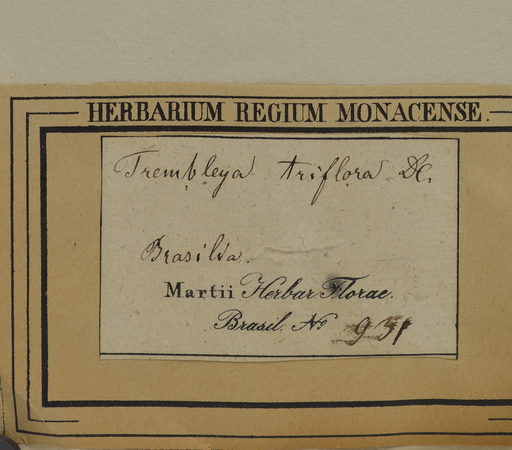 HERBARIUM REGIUM MONACENSE.
Trembleya triflora DC.
Brasilia.
Martii Herbar. Florae.
Brasil. No 931